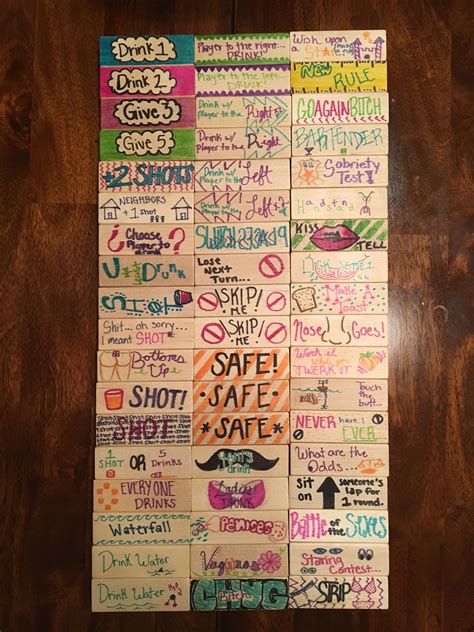 Drink 1
Drink 2
Give 3
Give 5
+2 SHOTS
NEIGHBORS
+1 Shot
¿Choose a
Player to
drink?
U + I = Drunk
SHOT
Shit... oh sorry...
I meant SHOT
Bottoms
Up
SHOT!
SHOT
1 SHOT OR 5 Drinks
EVERYONE
DRINKS
Waterfall
Drink Water
Drink Water
Player to the right...
DRINK!
Player to the left...
DRINK!
Drink w/
player to the
Right
Drink w/
player to the
Right
Drink w/
player to the
Left
Drink w/
player to the
Left
Lose
Next
Turn...
SKIP/
ME
SKIP/
ME
SAFE!
SAFE
SAFE
Gent's
drink
Ladies
DRINK
Penises
Vaginas
CHUG
Bitch
Wish upon
a
NEW
RULE
GO AGAIN BITCH
BARTENDER
Sobriety
Test!
Handstand
KISS
TELL
Make A
Toast
Nose Goes!
Work it
TWERK IT
Touch
the
butt...
NEVER have I
EVER
What are the
Odds...
Sit
on
someone's
lap for 1
round.
Battle of the Sexes
Staring
Contest...
STRIP